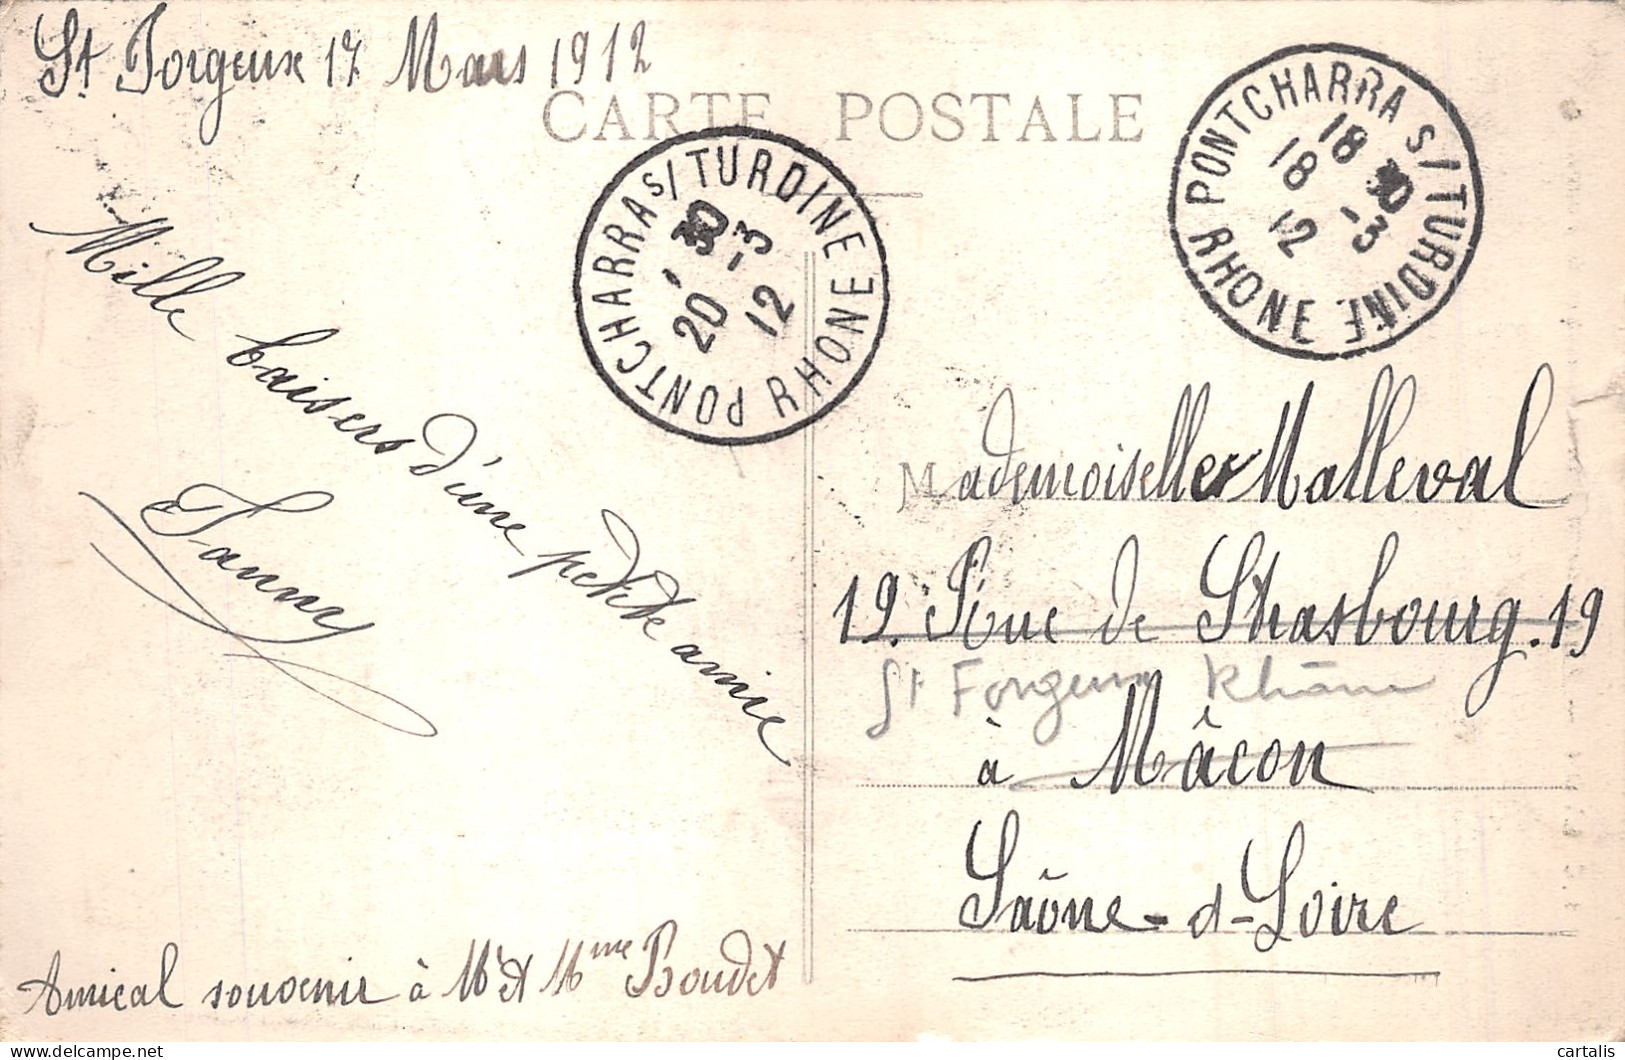 St Forgeux 17 Mars 1912
CARTE POSTALE
PONTCHARRA S/ TURDINE
RHONE
18 30
18 -3
12
PONTCHARRA S/ TURDINE
RHONE
- 30
20 -3
12
Mille baisers d'une petite amie
Fanny
Mademoiselles Malleval
19. Rue de Strasbourg. 19
St Forgeux Rhône
à Mâcon
Saône-d-Loire
Amical souvenir à Mr et Mme Boudet
cartalis
delcampe.net